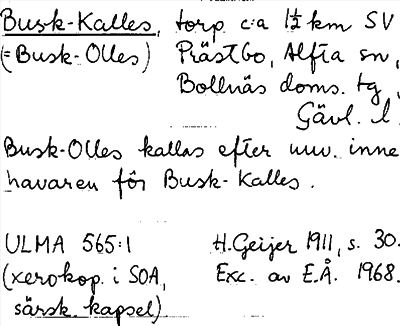 Busk-Kalles, torp c:a 1½ km SV
(= Busk-Olles) Prästbo, Alfta sn,
Bollnäs doms. tg,
Gävl. l.
Busk-Olles kallas efter nuv. inne
havaren för Busk-Kalles.
ULMA 565:1 H. Geijer 1911, s. 30.
(xerokop. i SOA, Exc. av E.Å. 1968.
särsk. kapsel)